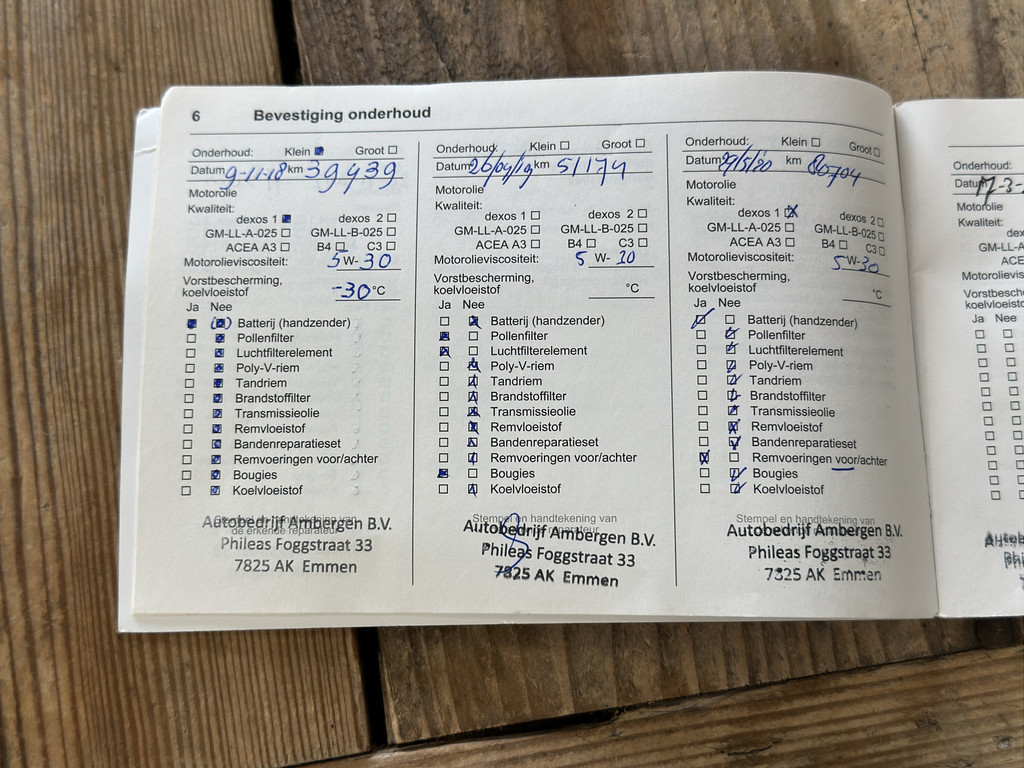 6 Bevestiging onderhoud
Onderhoud: Klein Groot
Datum 9-11-18 km 39439
Motorolie
Kwaliteit:
dexos 1 dexos 2
GM-LL-A-025 GM-LL-B-025
ACEA A3 B4 C3
Motorolieviscositeit: 5 W- 30
Vorstbescherming,
koelvloeistof -30 °C
Ja Nee
Batterij (handzender)
Pollenfilter
Luchtfilterelement
Poly-V-riem
Tandriem
Brandstoffilter
Transmissieolie
Remvloeistof
Bandenreparatieset
Remvoeringen voor/achter
Bougies
Koelvloeistof
Stempel en handtekening van
de erkende reparateur
Autobedrijf Ambergen B.V.
Phileas Foggstraat 33
7825 AK Emmen
Onderhoud: Klein Groot
Datum 26/04/19 km 51174
Motorolie
Kwaliteit:
dexos 1 dexos 2
GM-LL-A-025 GM-LL-B-025
ACEA A3 B4 C3
Motorolieviscositeit: 5 W- 30
Vorstbescherming,
koelvloeistof °C
Ja Nee
Batterij (handzender)
Pollenfilter
Luchtfilterelement
Poly-V-riem
Tandriem
Brandstoffilter
Transmissieolie
Remvloeistof
Bandenreparatieset
Remvoeringen voor/achter
Bougies
Koelvloeistof
Stempel en handtekening van
Autobedrijf Ambergen B.V.
Phileas Foggstraat 33
7825 AK Emmen
Onderhoud: Klein Groot
Datum km
Motorolie
Kwaliteit:
dexos 1 dexos 2
GM-LL-A-025 GM-LL-B-025
ACEA A3 B4 C3
Motorolieviscositeit: 5 W- 30
Vorstbescherming,
koelvloeistof °C
Ja Nee
Batterij (handzender)
Pollenfilter
Luchtfilterelement
Poly-V-riem
Tandriem
Brandstoffilter
Transmissieolie
Remvloeistof
Bandenreparatieset
Remvoeringen voor/achter
Bougies
Koelvloeistof
Stempel en handtekening van
Autobedrijf Ambergen B.V.
Phileas Foggstraat 33
7325 AK Emmen
Onderhoud:
Datum 17-3-
Motorolie
Kwaliteit:
GM-LL-A
ACE
Motorolievis
Vorstbesche
koelvloeistof
Ja Nee